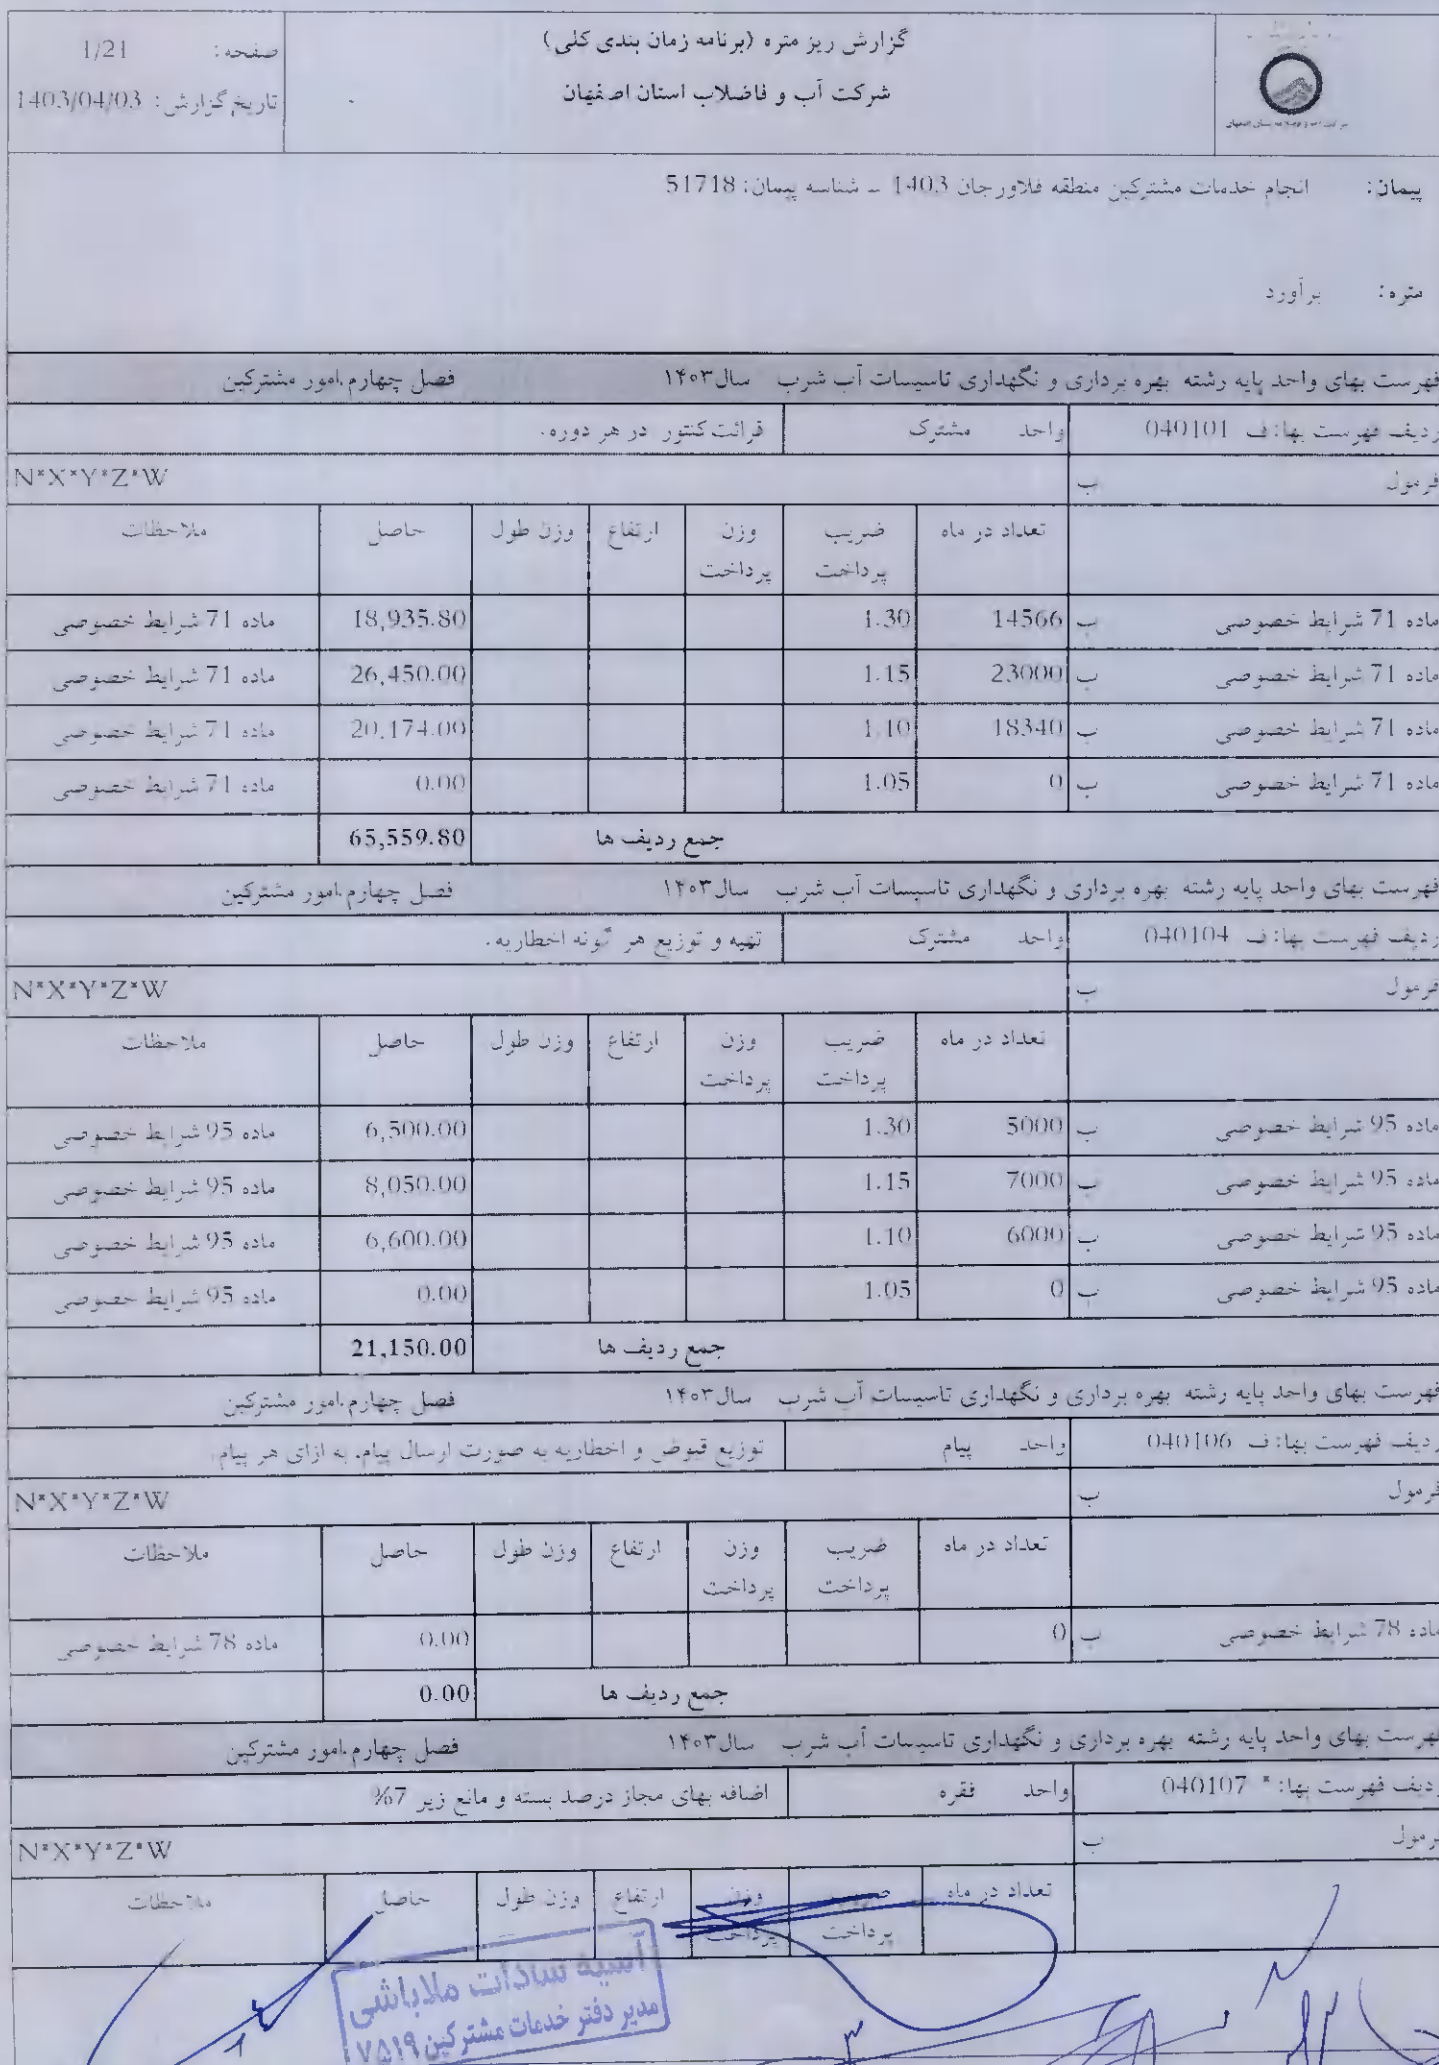 گزارش ریز متره (برنامه زمان بندی کلی)
شرکت آب و فاضلاب استان اصفهان
صفحه: 1/21
تاریخ گزارش: 1403/04/03
پیمان: انجام خدمات مشترکین منطقه فلاورجان 1403 - شناسه پیمان: 51718
متره: برآورد
فهرست بهای واحد پایه رشته بهره برداری و نگهداری تاسیسات آب شرب سال ۱۴۰۳ فصل چهارم.امور مشترکین
ردیف فهرست بها: ف 040101 واحد مشترک قرائت کنتور در هر دوره.
فرمول ب N*X*Y*Z*W
تعداد در ماه ضریب پرداخت وزن پرداخت ارتفاع وزن طول حاصل ملاحظات
ماده 71 شرایط خصوصی ب 14566 1.30 18,935.80 ماده 71 شرایط خصوصی
ماده 71 شرایط خصوصی ب 23000 1.15 26,450.00 ماده 71 شرایط خصوصی
ماده 71 شرایط خصوصی ب 18340 1.10 20,174.00 ماده 71 شرایط خصوصی
ماده 71 شرایط خصوصی ب 0 1.05 0.00 ماده 71 شرایط خصوصی
جمع ردیف ها 65,559.80
فهرست بهای واحد پایه رشته بهره برداری و نگهداری تاسیسات آب شرب سال ۱۴۰۳ فصل چهارم.امور مشترکین
ردیف فهرست بها: ف 040104 واحد مشترک تهیه و توزیع هر گونه اخطاریه.
فرمول ب N*X*Y*Z*W
تعداد در ماه ضریب پرداخت وزن پرداخت ارتفاع وزن طول حاصل ملاحظات
ماده 95 شرایط خصوصی ب 5000 1.30 6,500.00 ماده 95 شرایط خصوصی
ماده 95 شرایط خصوصی ب 7000 1.15 8,050.00 ماده 95 شرایط خصوصی
ماده 95 شرایط خصوصی ب 6000 1.10 6,600.00 ماده 95 شرایط خصوصی
ماده 95 شرایط خصوصی ب 0 1.05 0.00 ماده 95 شرایط خصوصی
جمع ردیف ها 21,150.00
فهرست بهای واحد پایه رشته بهره برداری و نگهداری تاسیسات آب شرب سال ۱۴۰۳ فصل چهارم.امور مشترکین
ردیف فهرست بها: ف 040106 واحد پیام توزیع قبوض و اخطاریه به صورت ارسال پیام. به ازای هر پیام.
فرمول ب N*X*Y*Z*W
تعداد در ماه ضریب پرداخت وزن پرداخت ارتفاع وزن طول حاصل ملاحظات
ماده 78 شرایط خصوصی ب 0 0.00 ماده 78 شرایط خصوصی
جمع ردیف ها 0.00
فهرست بهای واحد پایه رشته بهره برداری و نگهداری تاسیسات آب شرب سال ۱۴۰۳ فصل چهارم.امور مشترکین
ردیف فهرست بها: * 040107 واحد فقره اضافه بهای مجاز درصد بسته و مانع زیر 7%
فرمول ب N*X*Y*Z*W
تعداد در ماه ضریب پرداخت وزن پرداخت ارتفاع وزن طول حاصل ملاحظات
آسیه سادات ملاباشی
مدیر دفتر خدمات مشترکین ۷۵۱۹